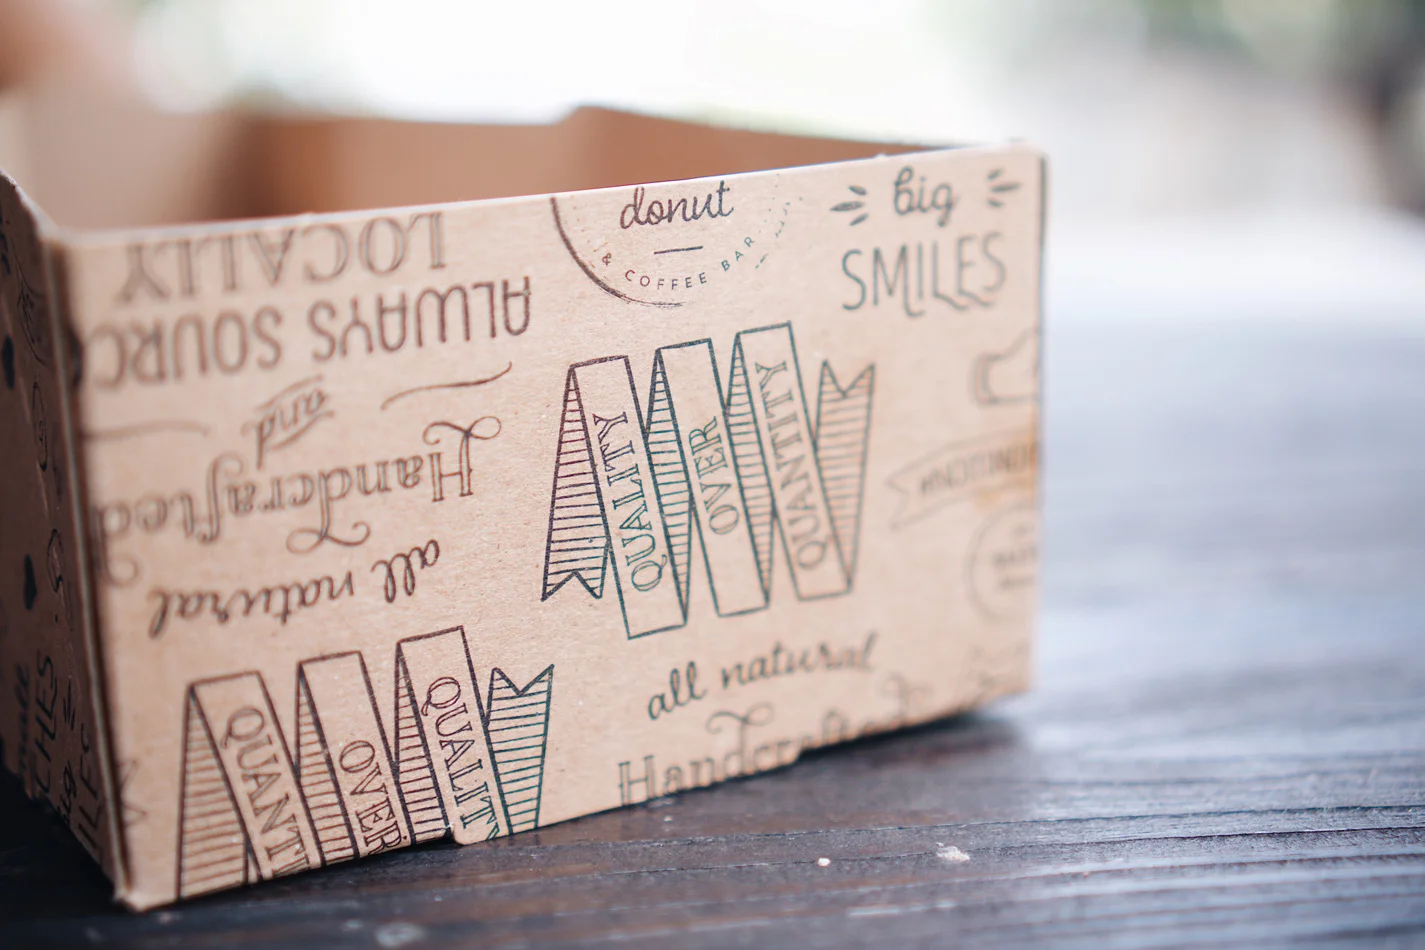 donut
& COFFEE BAR
big
SMILES
LOCALLY
ALWAYS SOURC
and
Handcrafted
all natural
QUALITY
OVER
QUANTITY
QUANTI
OVER
QUALITY
all natural
Handcrafted